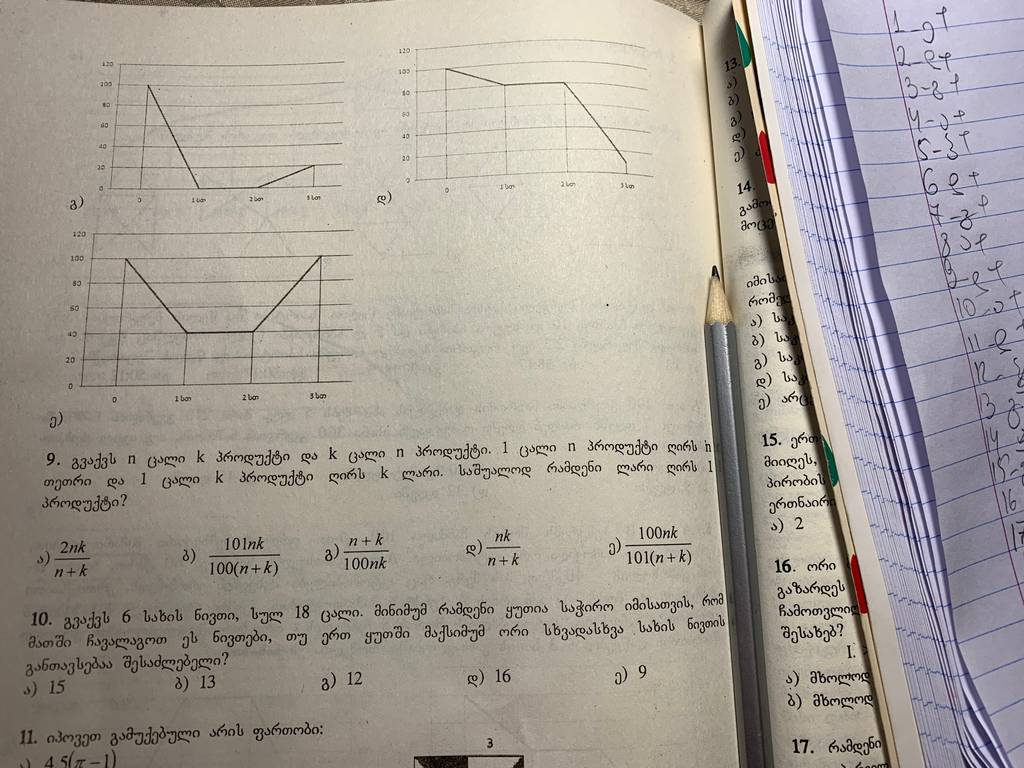 120
100
80
60
40
20
0
0 1 სთ 2 სთ 3 სთ
გ)
120
100
80
60
40
20
0
0 1 სთ 2 სთ 3 სთ
დ)
120
100
80
60
40
20
0
0 1 სთ 2 სთ 3 სთ
ე)
9. გვაქვს n ცალი k პროდუქტი და k ცალი n პროდუქტი. 1 ცალი n პროდუქტი ღირს n
თეთრი და 1 ცალი k პროდუქტი ღირს k ლარი. საშუალოდ რამდენი ლარი ღირს 1
პროდუქტი?
ა) 2nk/(n+k) ბ) 101nk/(100(n+k)) გ) (n+k)/(100nk) დ) nk/(n+k) ე) 100nk/(101(n+k))
10. გვაქვს 6 სახის ნივთი, სულ 18 ცალი. მინიმუმ რამდენი ყუთია საჭირო იმისათვის, რომ
მათში ჩავალაგოთ ეს ნივთები, თუ ერთ ყუთში მაქსიმუმ ორი სხვადასხვა სახის ნივთის
განთავსებაა შესაძლებელი?
ა) 15 ბ) 13 გ) 12 დ) 16 ე) 9
11. იპოვეთ გამუქებული არის ფართობი:
4,5(π−1)
3
13.
ა)
ბ)
გ)
დ)
ე)
14.
იმისა
ა)
ბ)
გ)
დ)
ე) არც
15. ერთ
მიიღეს,
პირობის
ერთნაირი
ა) 2
16. ორი
გაზარდეს
ჩამოთვლილ
შესახებ?
I.
ა) მხოლოდ
ბ) მხოლოდ
17. რამდენი